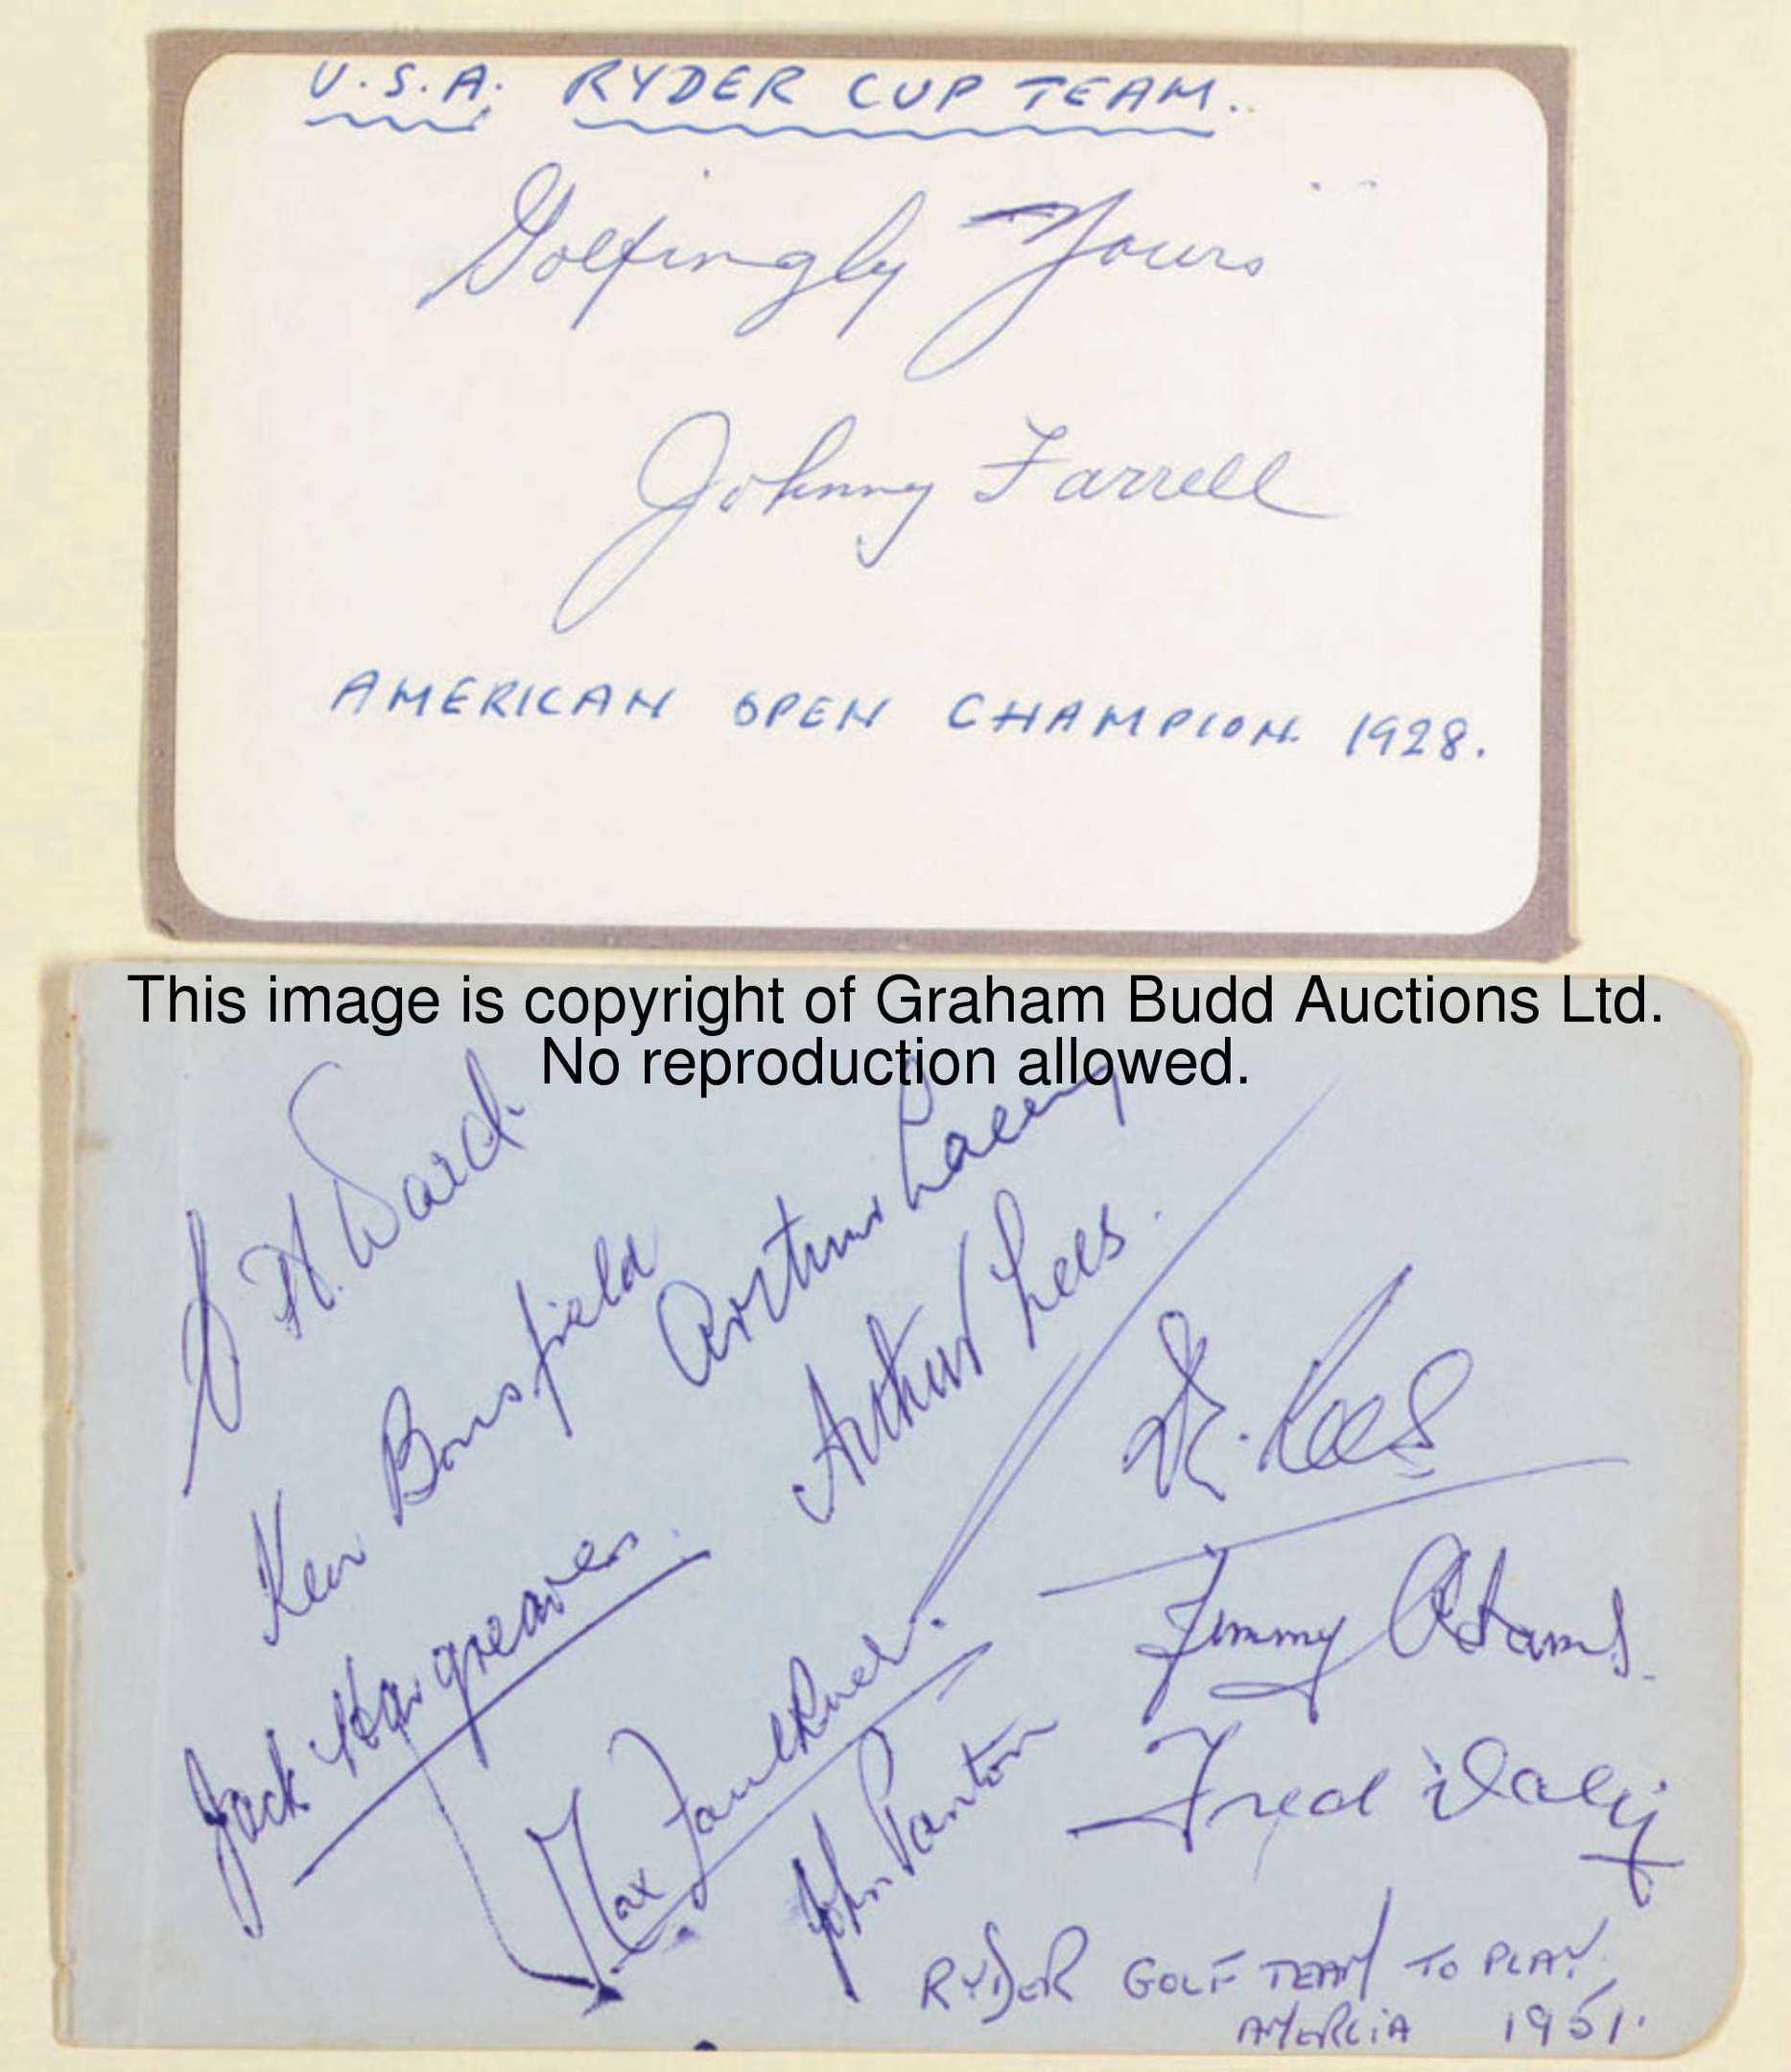 U.S.A. RYDER CUP TEAM.
Golfingly Yours
Johnny Farrell
AMERICAN OPEN CHAMPION 1928.
This image is copyright of Graham Budd Auctions Ltd.
No reproduction allowed.
C H. Ward.
Ken Bousfield
Arthur Lacey
Arthur Lees.
D. Rees
Jack Hargreaves.
Max Faulkner.
John Panton
Jimmy Adams.
Fred Daly
RYDER GOLF TEAM TO PLAY
AMERCIA 1951.